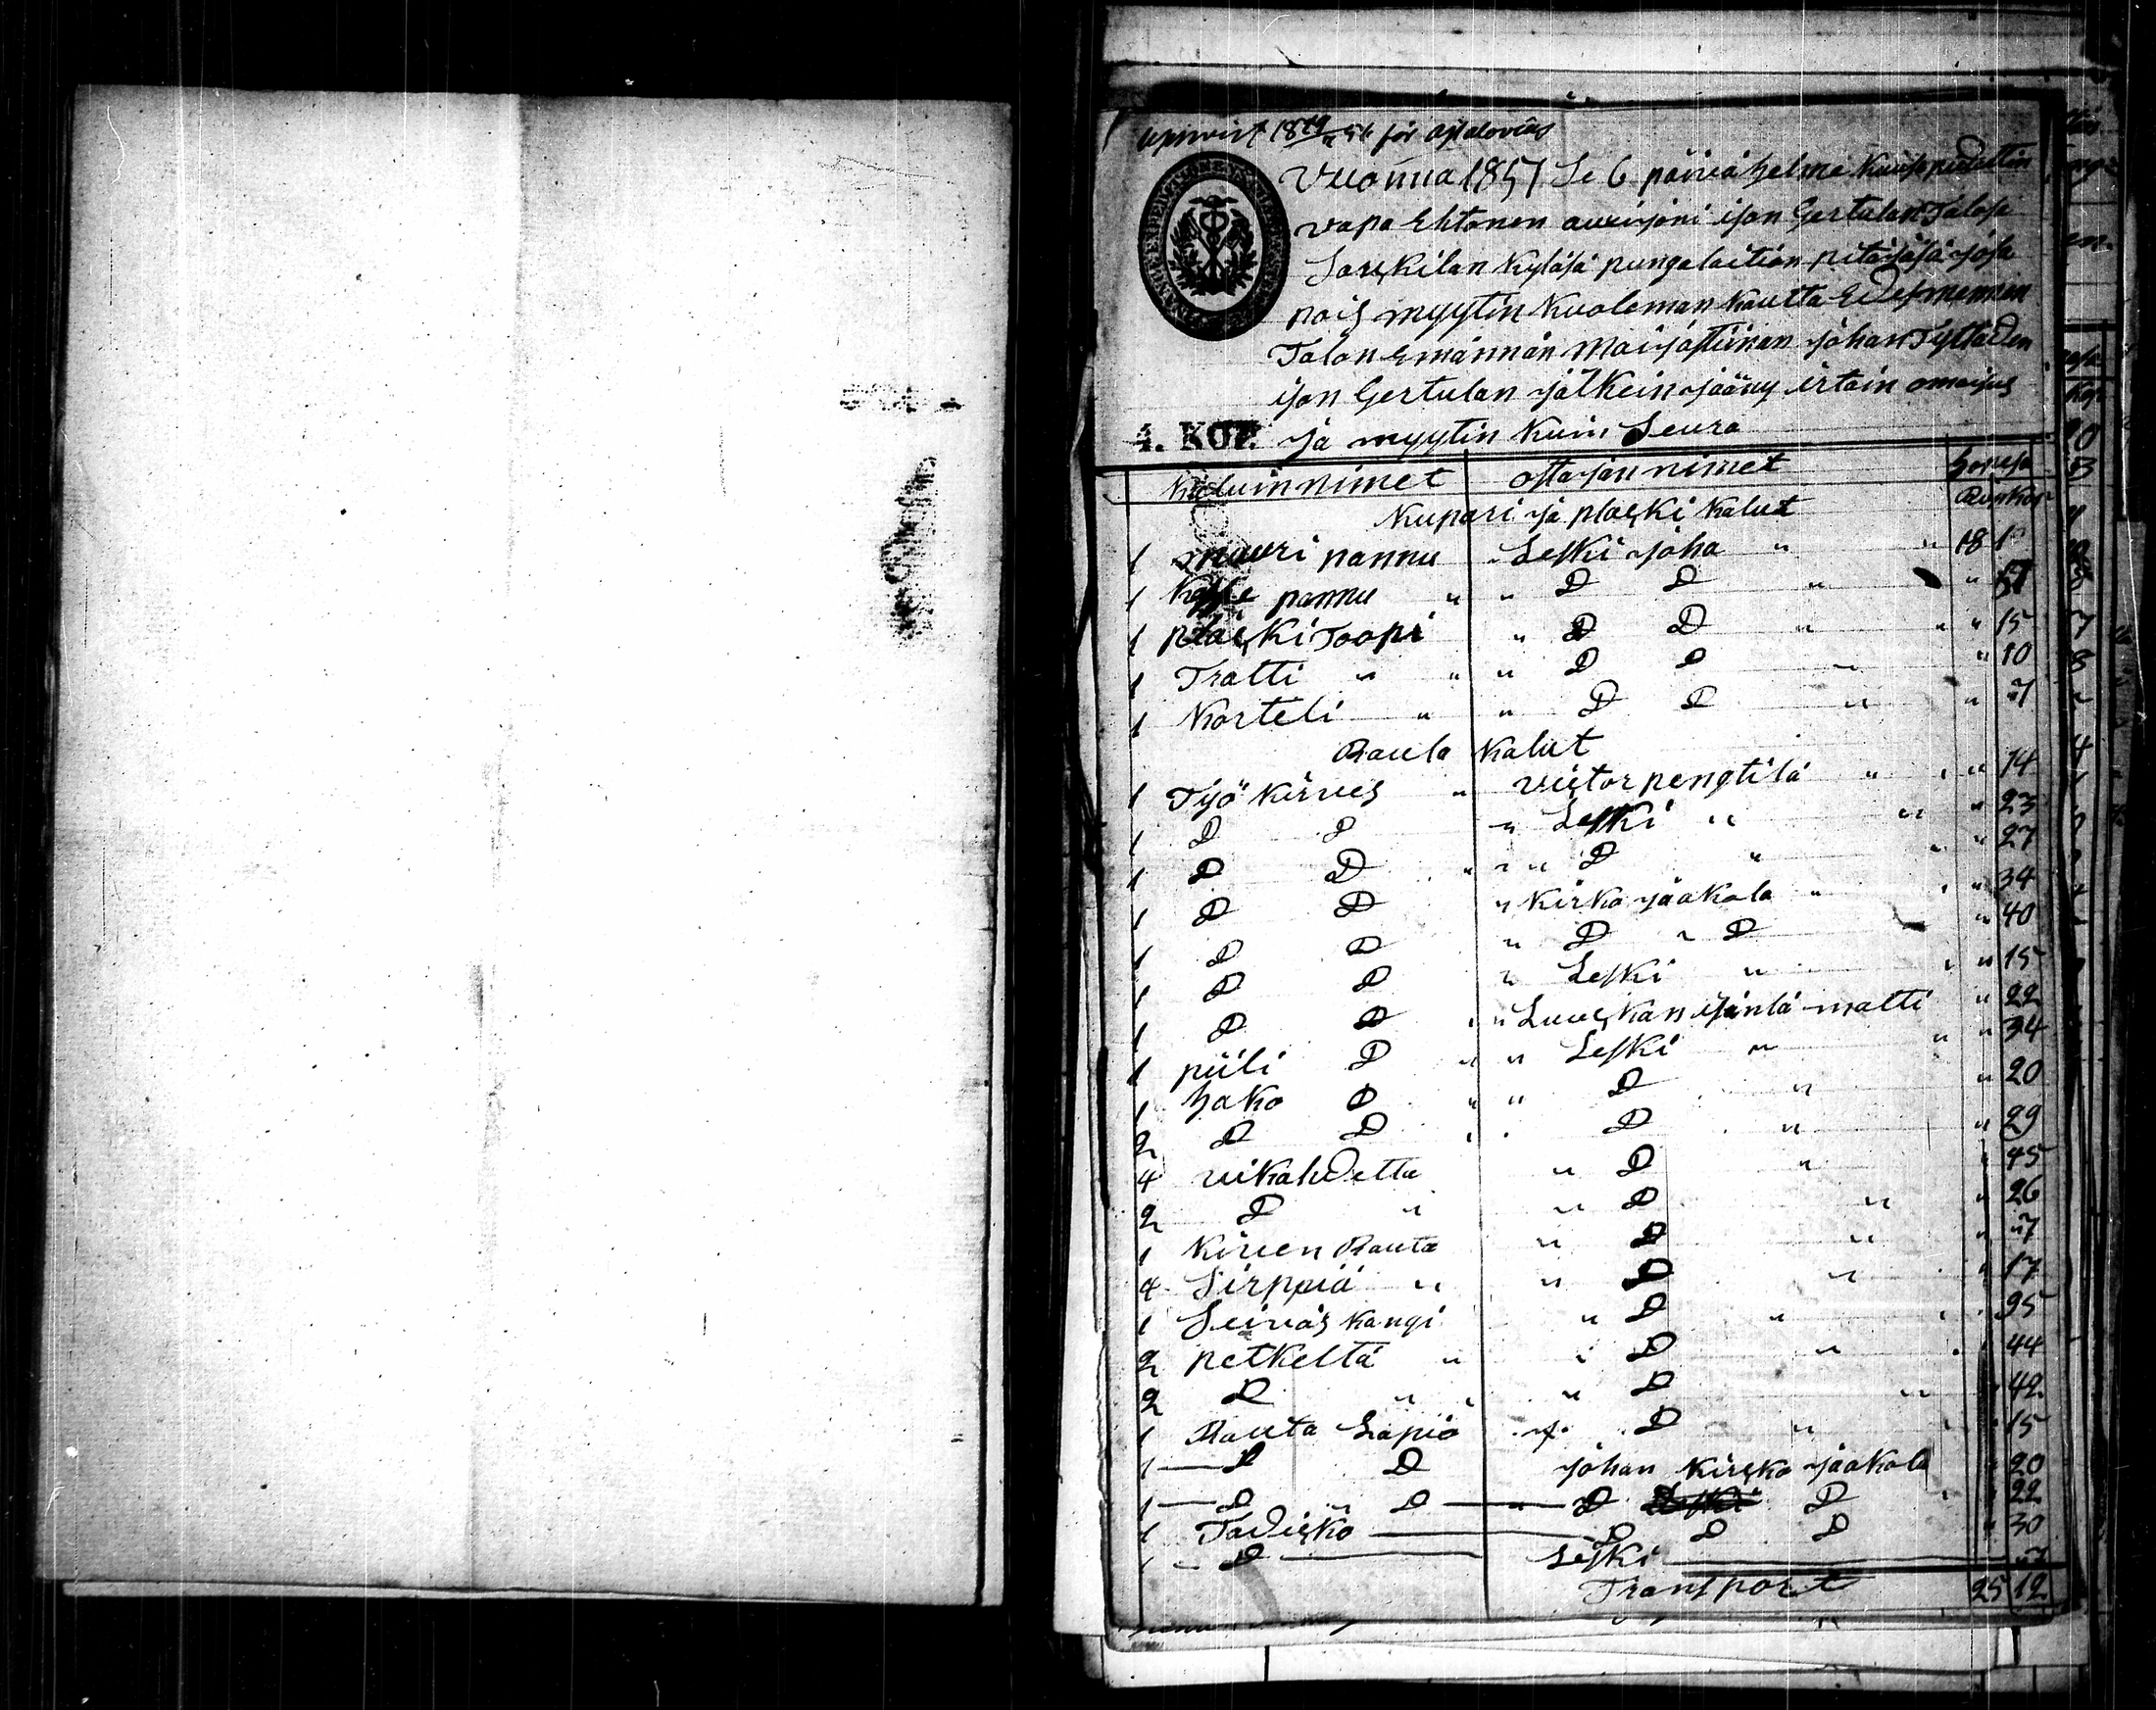 uppvist 18 19/2 54 för
Vuonna 1857 Se 6 päivä helme Kuusa pidettin
vapa Ehtonen auvisjoni ison Gertulan Talosa
Sarkilan Kyläsä pungalaition pitäjäsä josa
pois myytin Kuoleman Kautta Edesmennen
Talon Emännän Maijastiinan johan Tyttären
ison Gertulan jälkein jääny irtain omaisus
4. KOP. ja myytin kuin Seura
Kaluin nimet ostajan nimet
Rup Kop
Kupari ja pläcki Kalut
1 muuri pannu Leski joha " " 18 1
1 Kaffe pannu " " D D " "
1 pläcki Toopi " D D " " " 15
1 Tratti " " " D D " " 10
1 Korteli " " D D " " 7
Rauta Kalut
1 Työ kirves " victor pengtilä " " 14
1 D D " Leski " " " 23
1 D D " " " D " " " 27
1 D D " Kirko jaakola " " 34
1 D D " D " D " 40
1 D D " Leski " " 15
1 D D " Luuskan isäntä matti " 22
1 piili D " " Leski " " " 34
1 hako D " " D " " 20
2 D D D " " 29
4 vikahdetta " D " 45
2 D " " D " " 26
1 Kirven Rauta " D " " 7
4 Sirppiä " " D " " 17
1 Seiväs kangi " D " 95
2 petkeltä " " D " 44
2 D " " " D " 42
1 Rauta Lapio D " 15
1 D D johan Kircko jaakola 20
1 D D " D D 22
1 Tadicko D D D " 30
1 D Leski 7
Transport 25 12